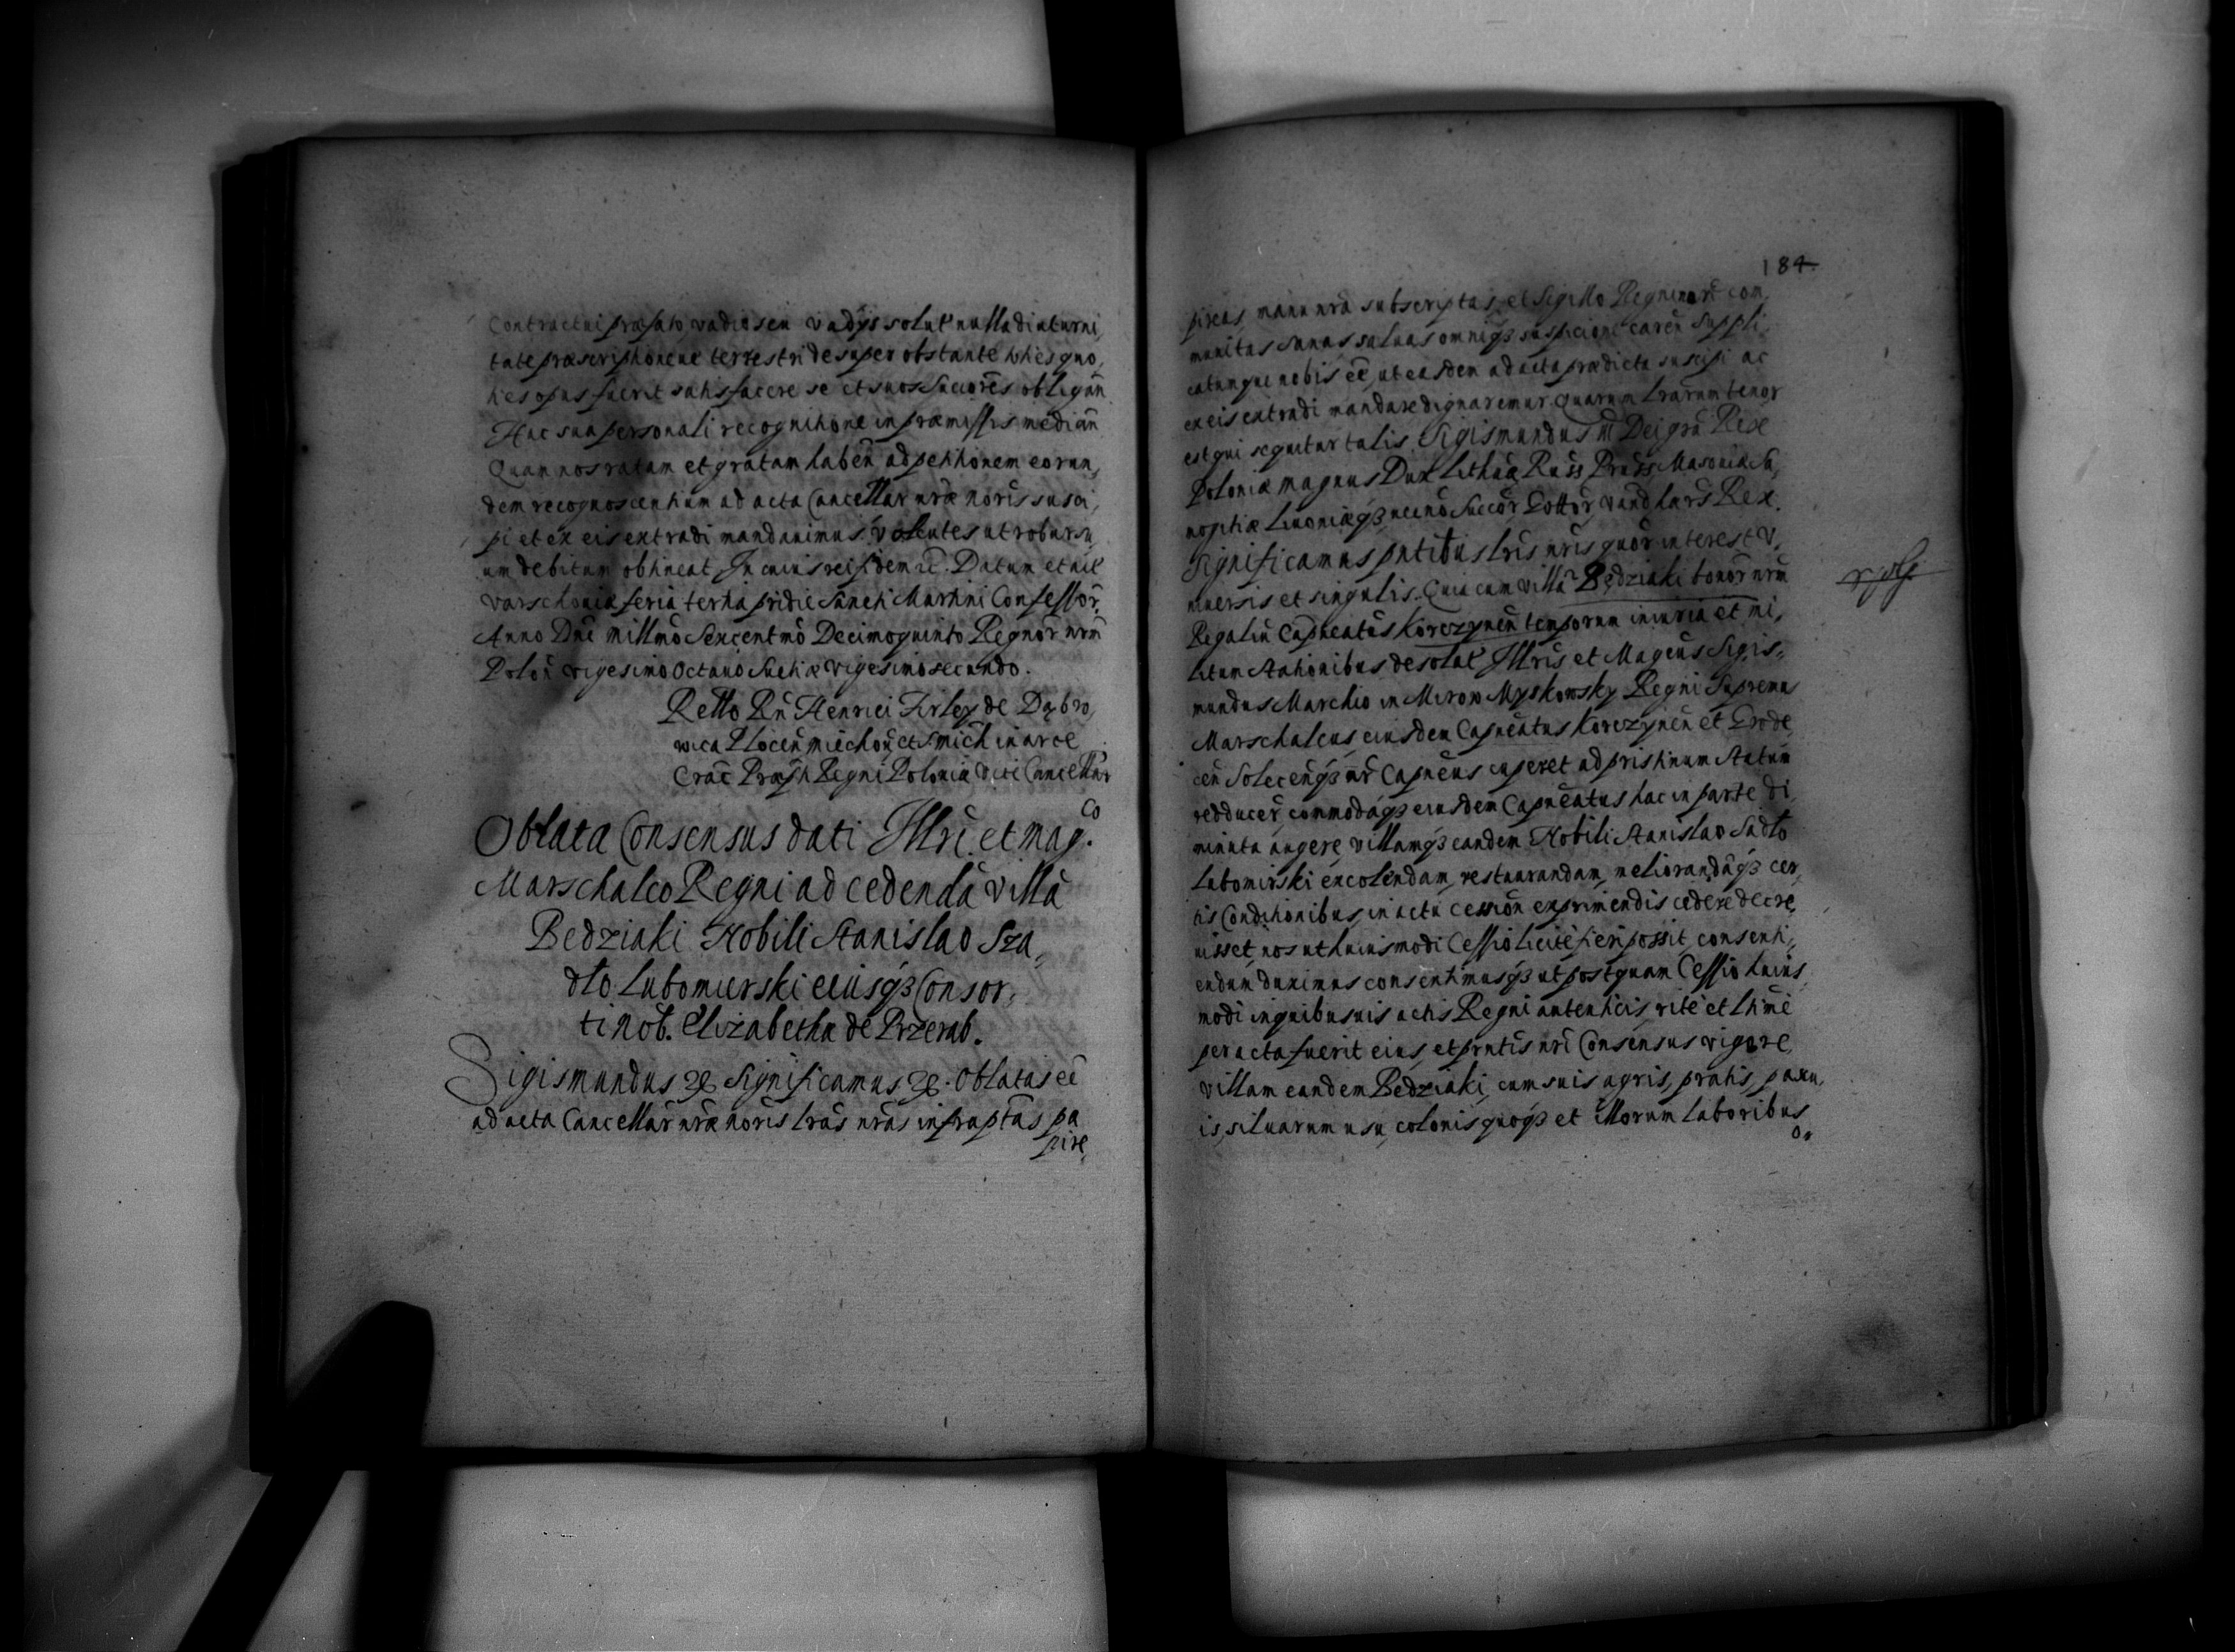 Contractui præfato, vadio seu vadijs solut nulla diuturni,
tate præscriptioneue terrestri desuper obstante toties quo,
ties opus fuerit satisfacere se et suos Succores obligan
Hac sua personali recognitione in præmissis median
Quam nos ratam et gratam haben ad petitionem eorun,
dem recognoscentium ad acta Cancellar nræ noris susci,
pi et ex eis extradi mandauimus, volentes ut robur su,
um debitum obtineat. In cuius rei fidem &c. Datum et act
Varschouiæ feria tertia pridie Sancti Martini Confessor,
Anno Dni millmo Sexcentmo Decimoquinto Regnor nrm
Polon vigesimo Octauo Suetiæ vigesimo secundo.
Retto Rn Henrici Firley de Dąbro,
wica Plocen miechou et S mich in arce
Crac Præpti Regni Poloniæ Vice Cancellar
Oblata Consensus dati Illri et mag.co
Marschalco Regni ad cedendã villã
Bedziaki Nobili Stanislao Sza,
dło Lubomierski eiusq3 Consor,
ti Nob. Elizabetha de Przerab.
Sigismundus &c Significamus &c. Oblatas eẽ
ad acta Cancellar nræ noris lras nras infraptas pa
pire,
184.
pireas, manu nra subscriptas, et Sigillo Regni nri com,
munitas sanas saluas omniq3 suspicione caren Suppli,
catumque nobis eẽ, ut easdem ad acta prædicta suscipi ac
ex eis extradi mandare dignaremur. Quarum lrarum tenor
est qui sequitur talis. Sigismundus III Dei gra Rex
Poloniæ magnus Dux Lithuæ Russ Pruss, Masouiæ Sa,
mogitiæ Liuoniæq3, necno Succor Gottor, Vandlarq Rex.
Significamus pntibus lris nris quor interest V,
niuersis et singulis. Quia cum villa Będziaki bonor nrm
Regaliu Capneatus Korczynen temporum iniuria et mi,
litum stationibus desolat Illris et Magcus Sigis,
mundus Marchio in Mirow Myszkowsky Regni Supremus
Marschalcus, eiusdem Capneatus Korczynen et Grode,
cen Solecenq3 nr Capneus cuperet ad pristinum statum
redducer, commodaq3 eiusdem Capneatus hac in parte di,
minuta augere villamq3 eandem Nobili Stanislao Sadło
Lubomirski excolendam, restaurandam, meliorandaq3 cer,
tis Conditionibus, in actu cession exprimendis cedere decre,
uisset, nos ut huiusmodi Cessio licite fieri possit, consenti,
endum duximus consentimusq3 ut postquam Cessio huius
modi in quibusuis actis Regni autenticis, rite et ltime
peracta fuerit eius, et pntis nri Consensus vigore,
villam eandem Bedziaki, cum suis agris, pratis, pascu,
is, siluarum usu, colonis quoq3 et illorum laboribus